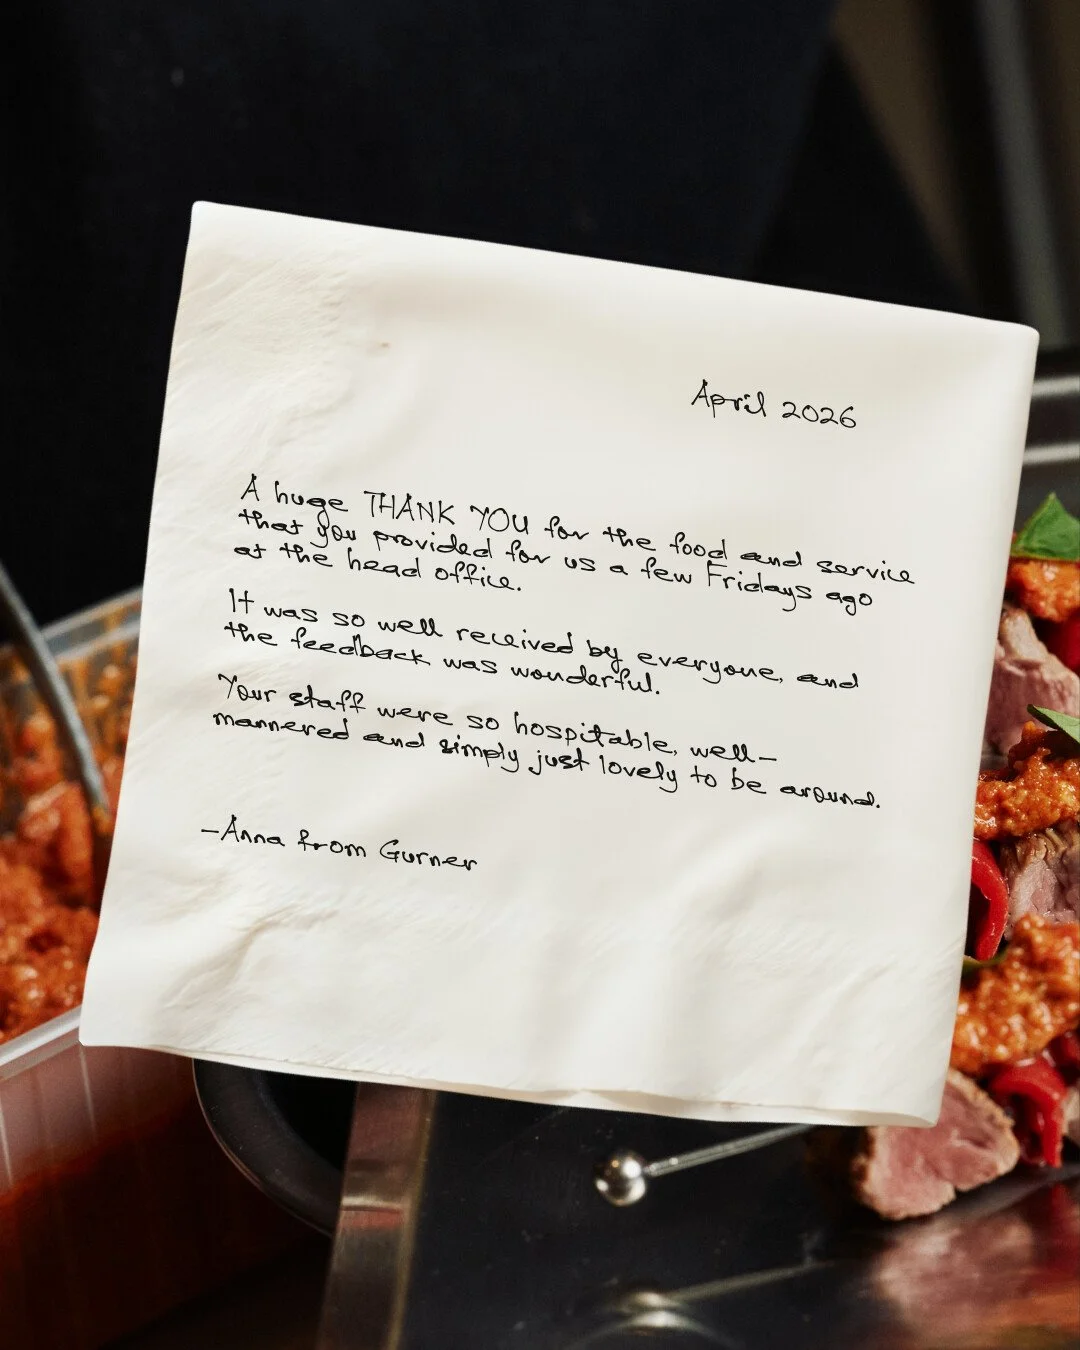 April 2026
A huge THANK YOU for the food and service
that you provided for us a few Fridays ago
at the head office.
It was so well received by everyone, and
the feedback was wonderful.
Your staff were so hospitable, well-
mannered and simply just lovely to be around.
-Anna from Gurner